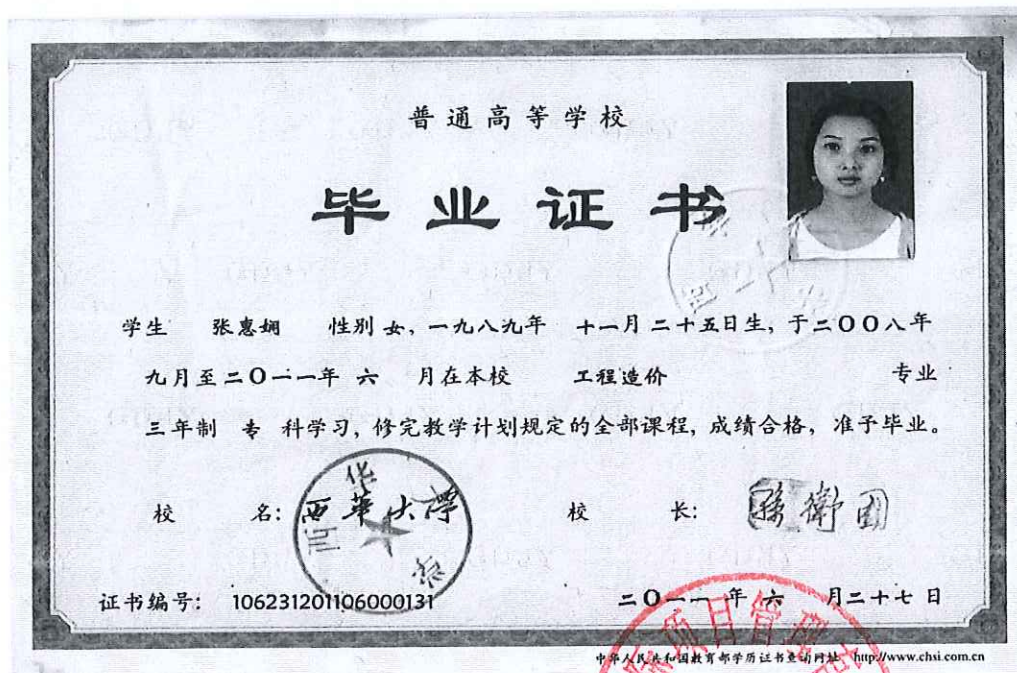 普通高等学校
毕业证书
学生 张惠娴 性别 女，一九八九年 十一月 二十五日生，于二〇〇八年
九月至二〇一一年 六 月在本校 工程造价 专业
三年制 专 科学习，修完教学计划规定的全部课程，成绩合格，准予毕业。
校 名：西华大学 校 长：孙卫国
证书编号： 106231201106000131 二〇一一年 六 月二十七日
项目管理
中华人民共和国教育部学历证书查询网址 http://www.chsi.com.cn